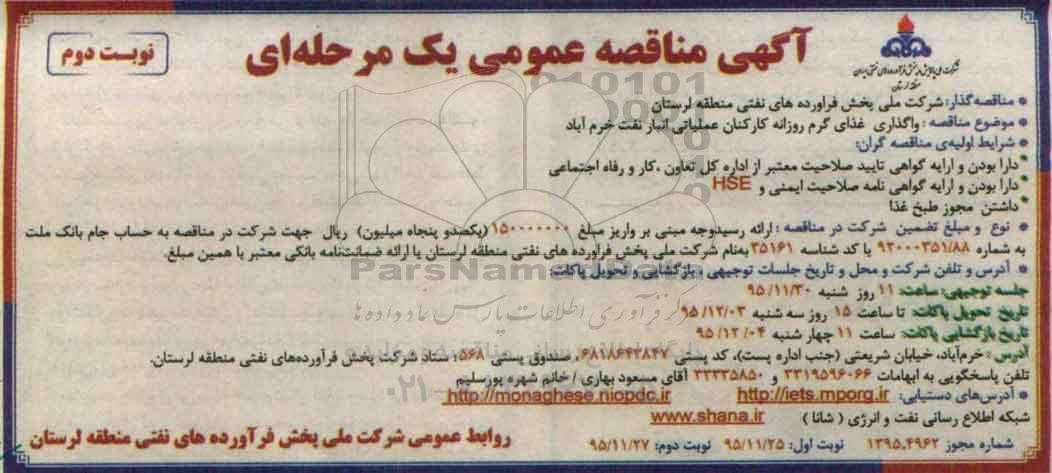 آگهی مناقصه عمومی یک مرحله‌ای
نوبت دوم
شرکت ملی پالایش و پخش فرآورده‌های نفتی ایران
منطقه لرستان
* مناقصه‌گذار: شرکت ملی پخش فراورده های نفتی منطقه لرستان
* موضوع مناقصه : واگذاری غذای گرم روزانه کارکنان عملیاتی انبار نفت خرم آباد
* شرایط اولیه‌ی مناقصه گران:
*دارا بودن و ارایه گواهی تایید صلاحیت معتبر از اداره کل تعاون ،کار و رفاه اجتماعی
*دارا بودن و ارایه گواهی نامه صلاحیت ایمنی و HSE
*داشتن مجوز طبخ غذا
* نوع و مبلغ تضمین شرکت در مناقصه : ارائه رسیدوجه مبنی بر واریز مبلغ ۱۵۰۰۰۰۰۰۰ (یکصدو پنجاه میلیون) ریال جهت شرکت در مناقصه به حساب جام بانک ملت
به شماره ۹۲۰۰۰۳۵۱/۸۸ با کد شناسه ۳۵۱۶۱ به‌نام شرکت ملی پخش فراورده های نفتی منطقه لرستان یا ارائه ضمانت‌نامه بانکی معتبر با همین مبلغ.
* آدرس و تلفن شرکت و محل و تاریخ جلسات توجیهی ، بازگشایی و تحویل پاکات:
جلسه توجیهی: ساعت: ۱۱ روز شنبه ۹۵/۱۱/۳۰
تاریخ تحویل پاکات: تا ساعت ۱۵ روز سه شنبه ۹۵/۱۲/۰۳
تاریخ بازگشایی پاکات: ساعت ۱۱ چهار شنبه ۹۵/۱۲/۰۴
آدرس : خرم‌آباد، خیابان شریعتی (جنب اداره پست)، کد پستی ۶۸۱۸۶۴۳۸۴۷، صندوق پستی ۵۶۸؛ ستاد شرکت پخش فرآورده‌های نفتی منطقه لرستان.
تلفن پاسخگویی به ابهامات ۳۳۱۹۵۹۶۰۶۶ و ۳۳۳۳۵۸۵۰ آقای مسعود بهاری / خانم شهره پورسلیم
* آدرس‌های دستیابی: http://iets.mporg.ir http://monaghese.niopdc.ir
شبکه اطلاع رسانی نفت و انرژی ( شانا ) www.shana.ir
شماره مجوز ۱۳۹۵.۴۹۶۲ نوبت اول: ۹۵/۱۱/۲۵ نوبت دوم: ۹۵/۱۱/۲۷
روابط عمومی شرکت ملی پخش فرآورده های نفتی منطقه لرستان
مرکز فرآوری اطلاعات پارس نماد داده ها